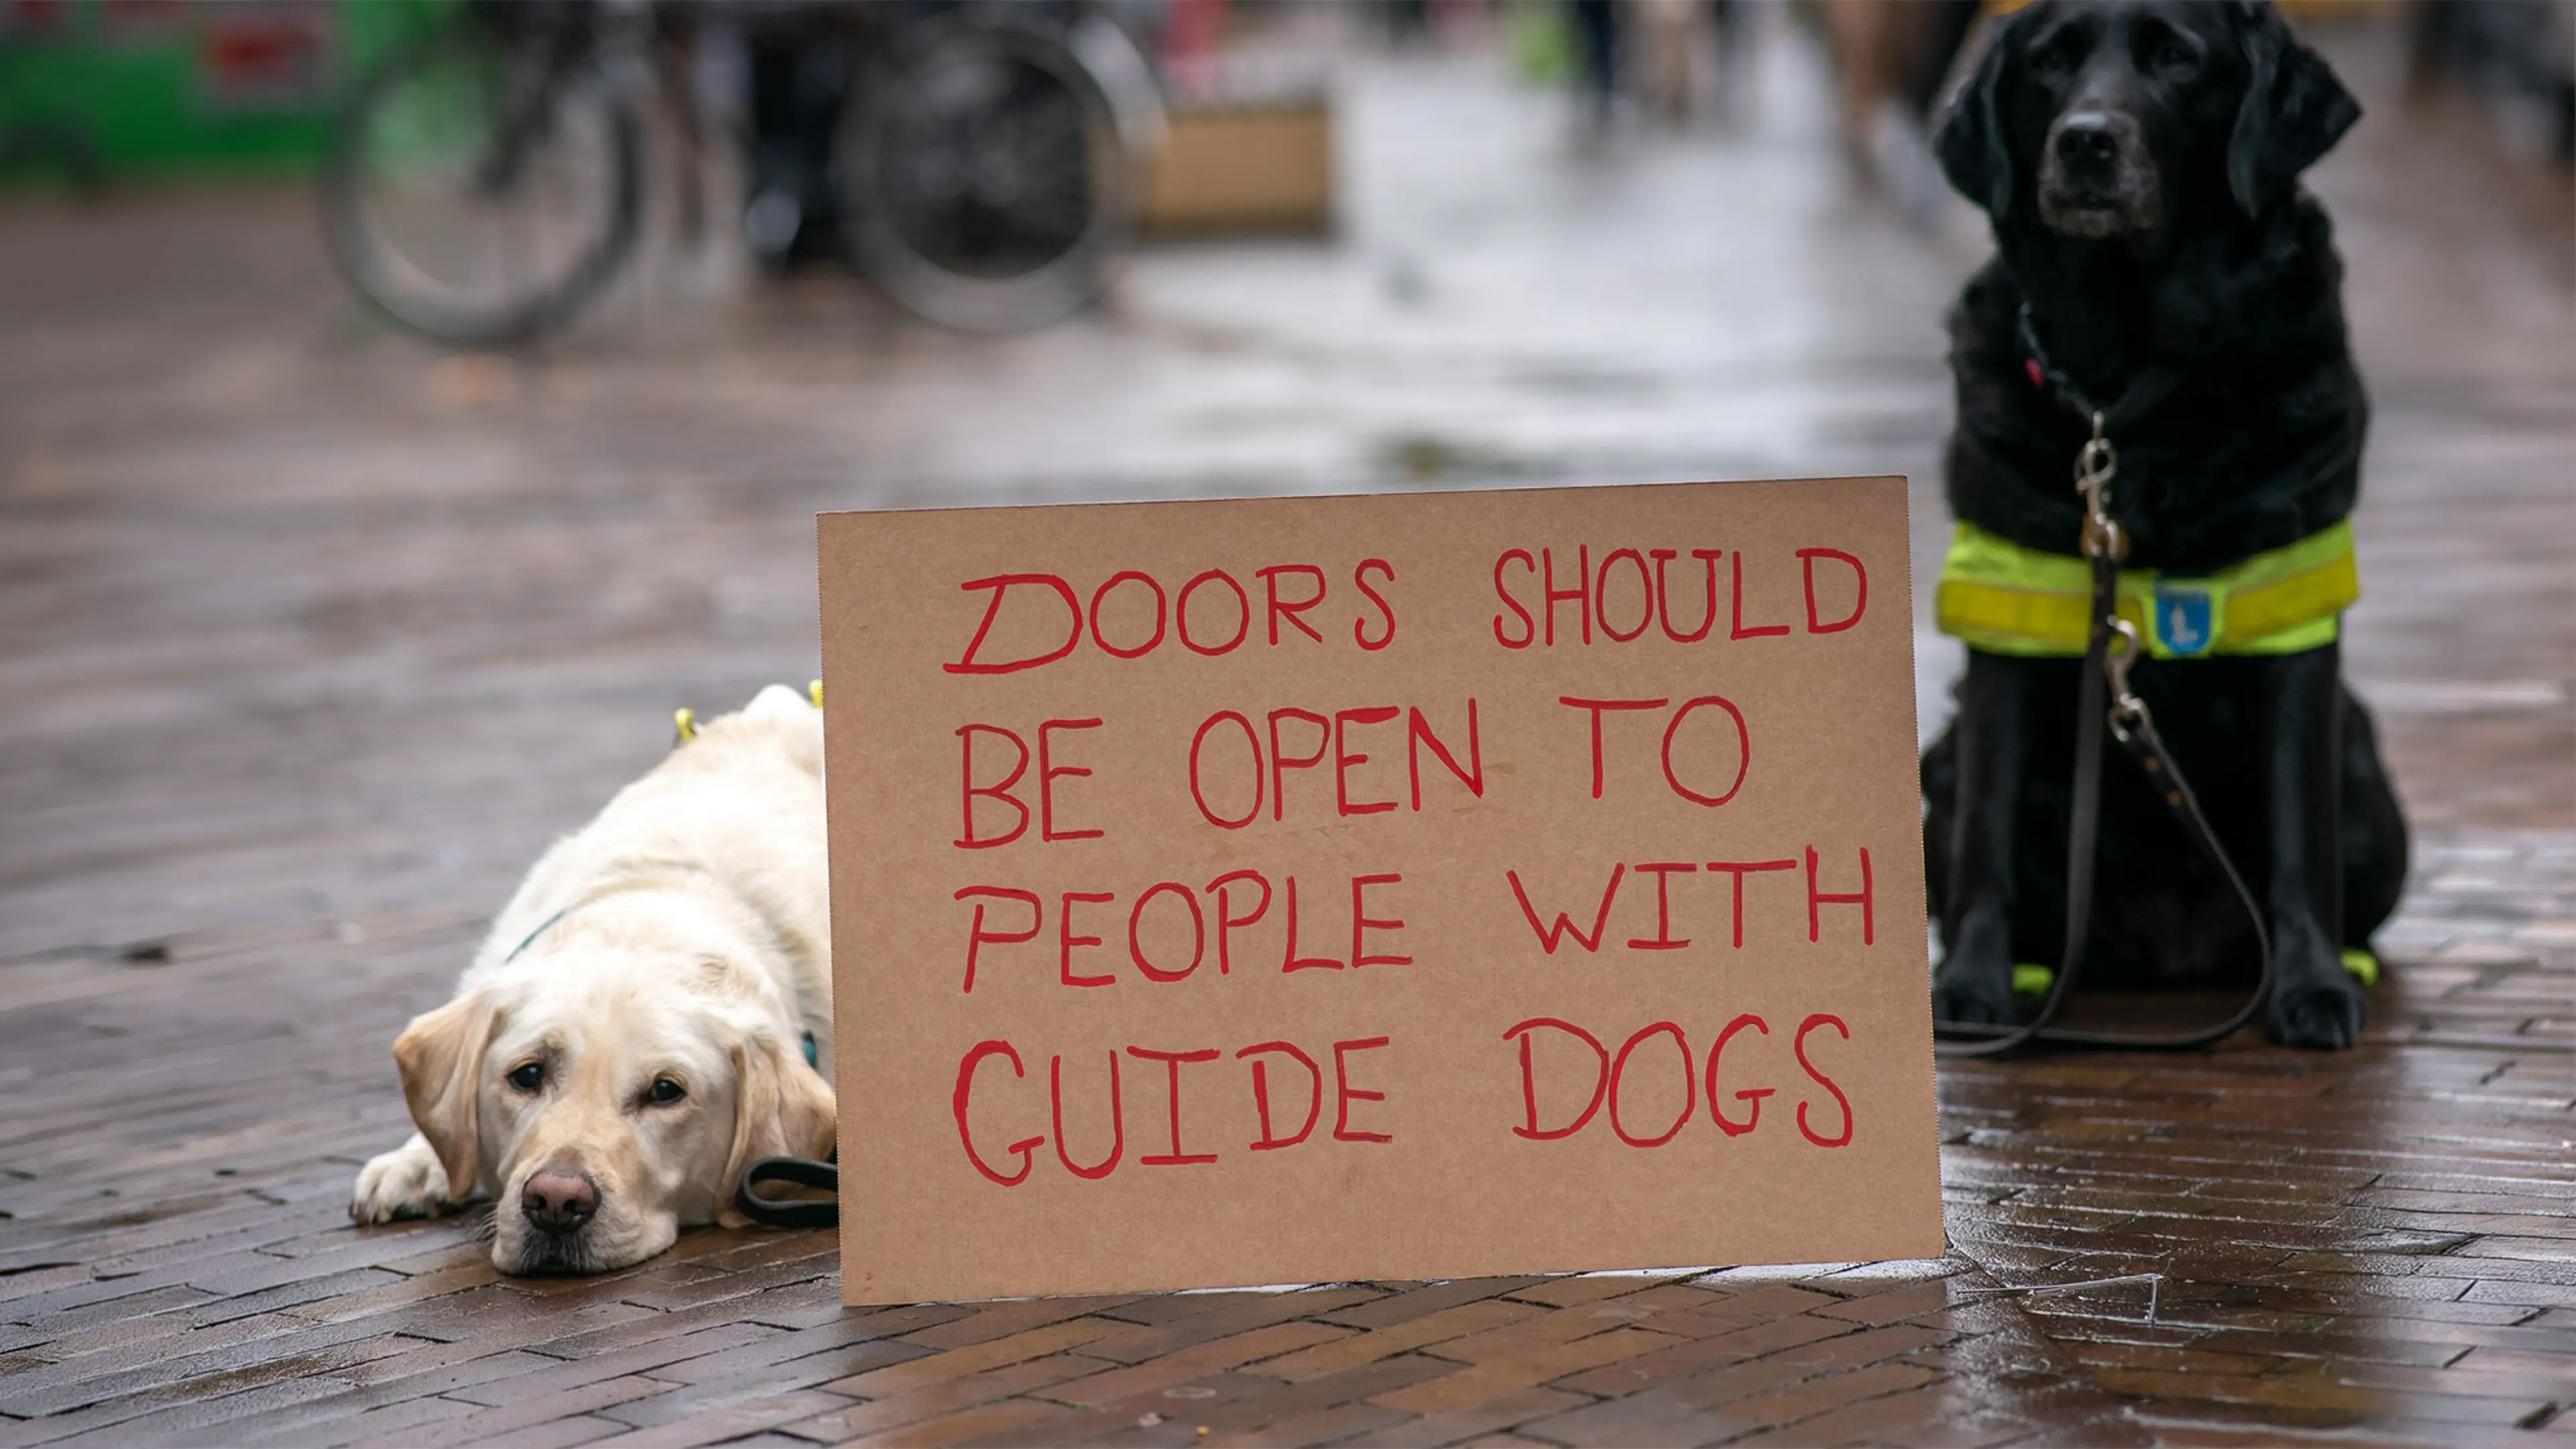 DOORS SHOULD
BE OPEN TO
PEOPLE WITH
GUIDE DOGS